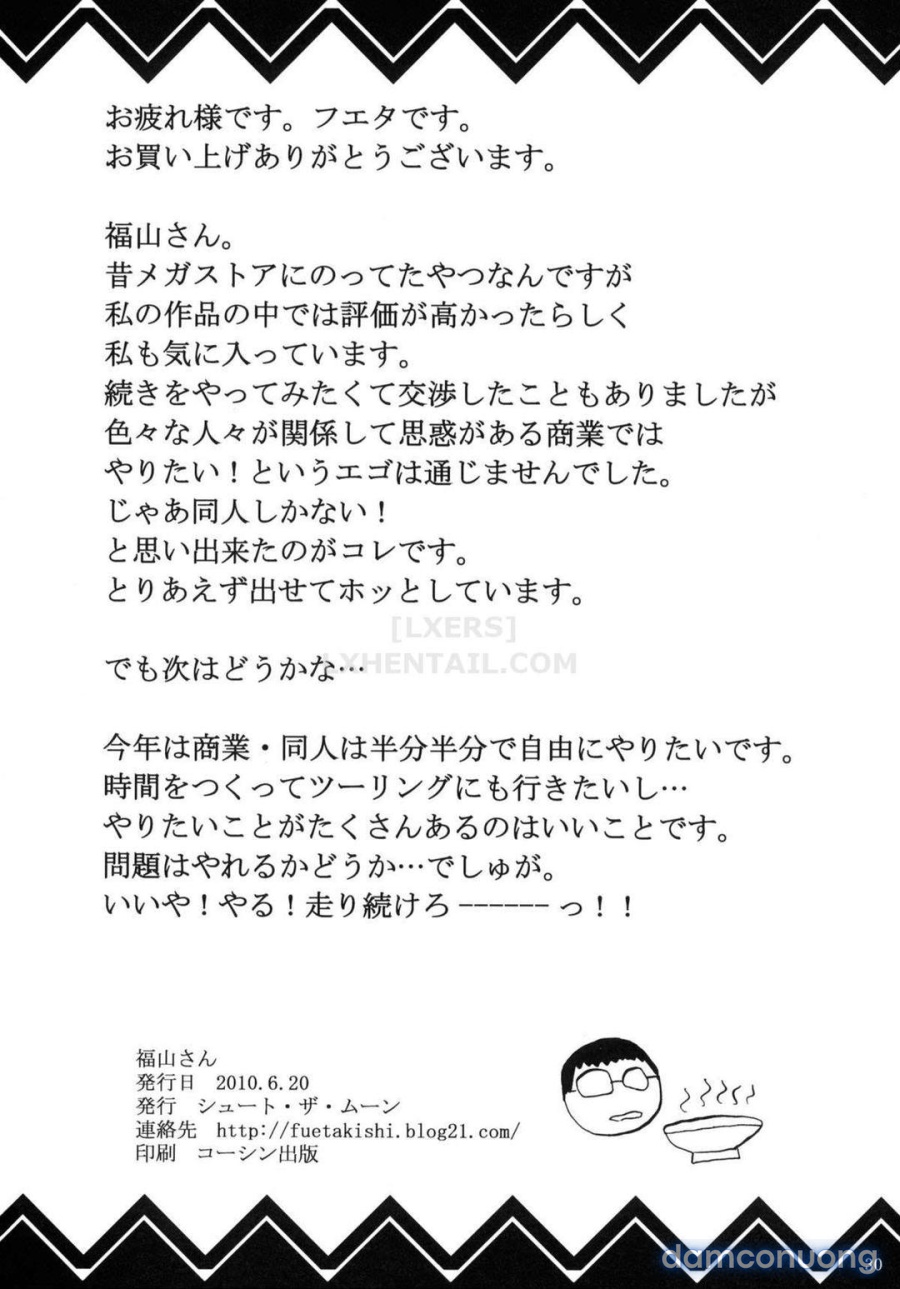 お疲れ様です。フエタです。
お買い上げありがとうございます。
福山さん。
昔メガストアにのってたやつなんですが
私の作品の中では評価が高かったらしく
私も気に入っています。
続きをやってみたくて交渉したこともありましたが
色々な人々が関係して思惑がある商業では
やりたい!というエゴは通じませんでした。
じゃあ同人しかない!
と思い出来たのがコレです。
とりあえず出せてホッとしています。
[LXERS]
LXHENTAIL.COM
でも次はどうかな…
今年は商業・同人は半分半分で自由にやりたいです。
時間をつくってツーリングにも行きたいし…
やりたいことがたくさんあるのはいいことです。
問題はやれるかどうか…でしゅが。
いいや!やる!走り続けろ------っ!!
福山さん
発行日 2010.6.20
発行 シュート・ザ・ムーン
連絡先 http://fuetakishi.blog21.com/
印刷 コーシン出版
damconuong
30